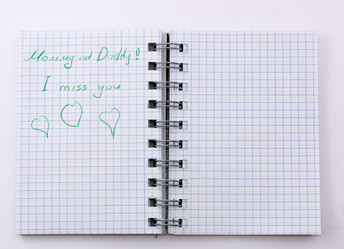 Mommy and Daddy!
I miss you